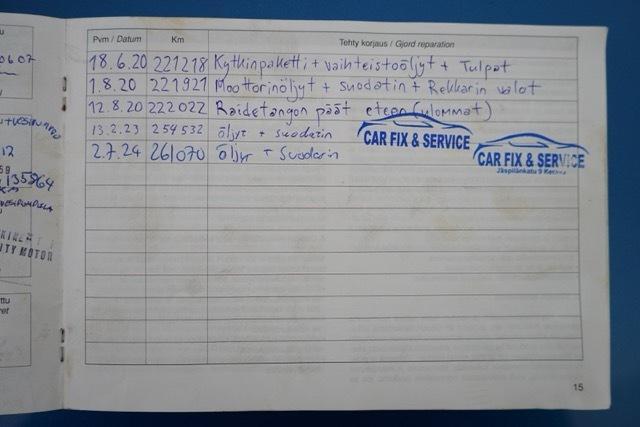 Pvm / Datum Km Tehty korjaus / Gjord reparation
18.6.20 221218 Kytkinpaketti + vaihteistoöljyt + Tulpat
1.8.20 221921 Moottorinöljyt + suodatin + Rekkarin valot
12.8.20 222022 Raidetangon päät eteen (ulommat)
13.2.23 254532 öljyt + suodatin CAR FIX & SERVICE
2.7.24 261070 öljyt + Suodatin CAR FIX & SERVICE
Jäspilänkatu 9
15
0607
12
135864
ITY MOTOR